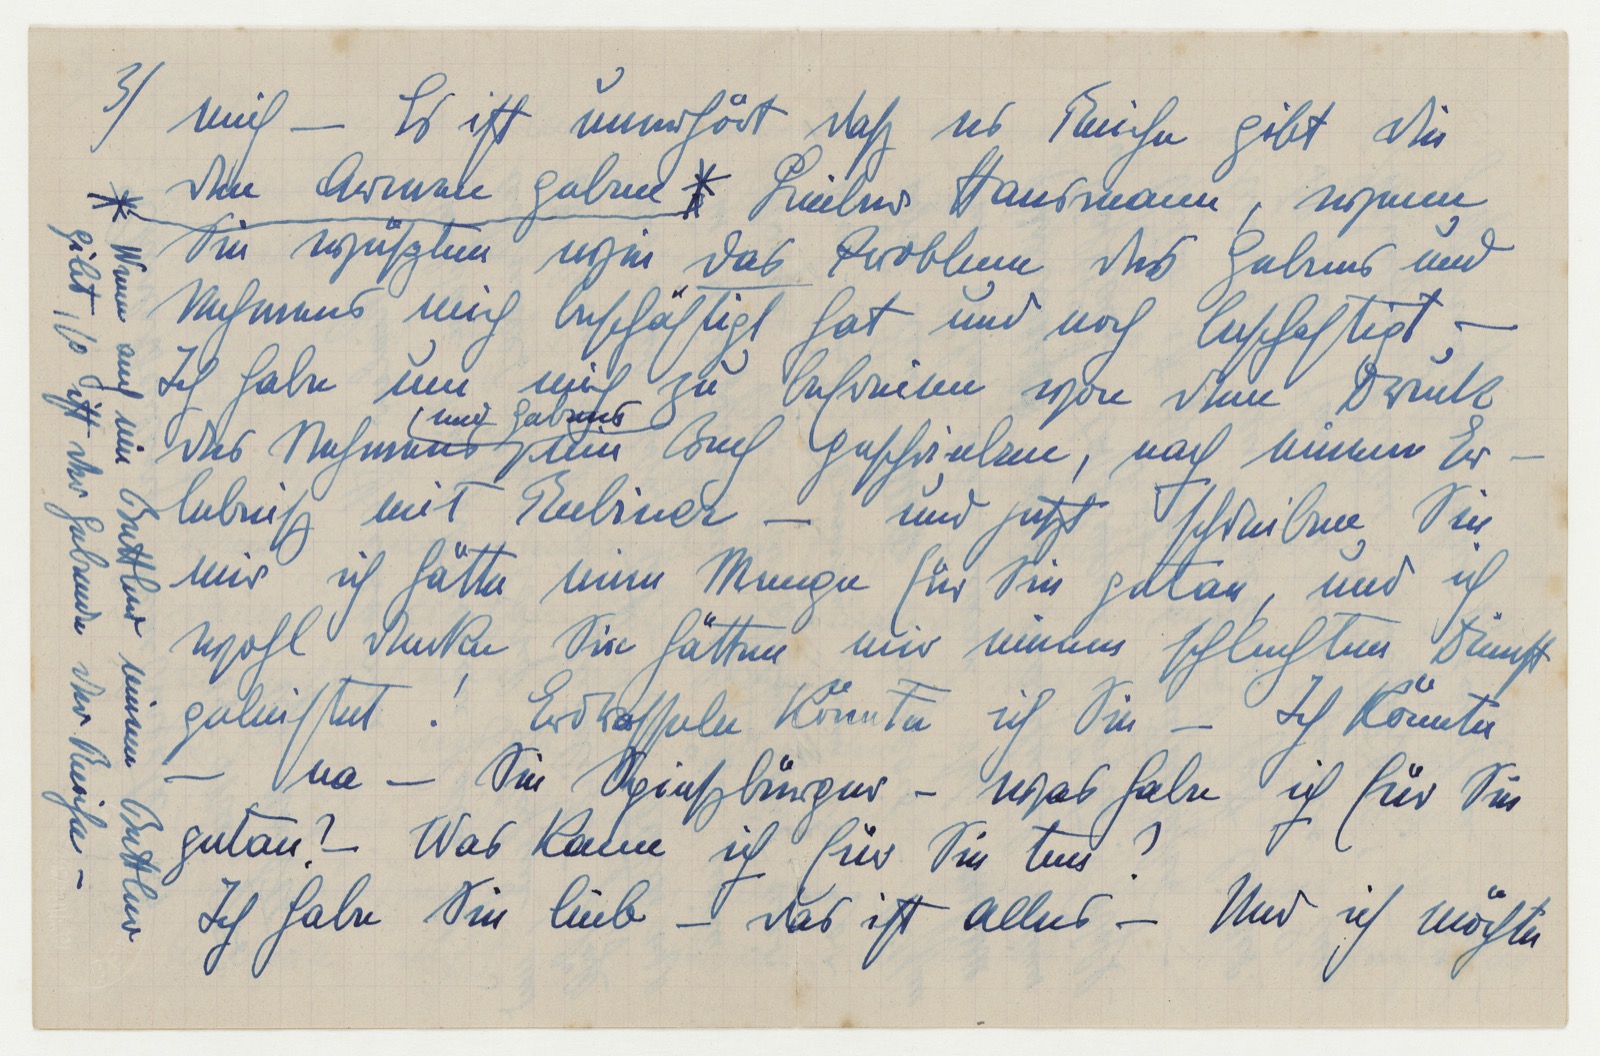 3/ mich — Es ist unerhört daß es Reiche gibt die
den Armen geben * Lieber Hausmann, wenn
Sie wüßten wie das Problem des Gebens und
Nehmens mich beschäftigt hat und noch beschäftigt —
Ich habe um mich zu befreien von dem Druck
(und Gebens)
des Nehmens ein Buch geschrieben, nach einem Er-
lebniß mit Rubiner — und jetzt schreiben Sie
mir ich hätte eine Menge für Sie getan, und ich
wohl denke Sie hätten mir einen schlechten Dienst
geleistet! Erdrosseln könnte ich Sie — Ich könnte
— na — Sie Spießbürger — was habe ich für Sie
getan? — Was kann ich für Sie tun?
Ich habe Sie lieb — das ist alles — Und ich möchte
* Wenn auch ein Bettler einem Bettler
gibt, so ist der Gebende der Reiche —